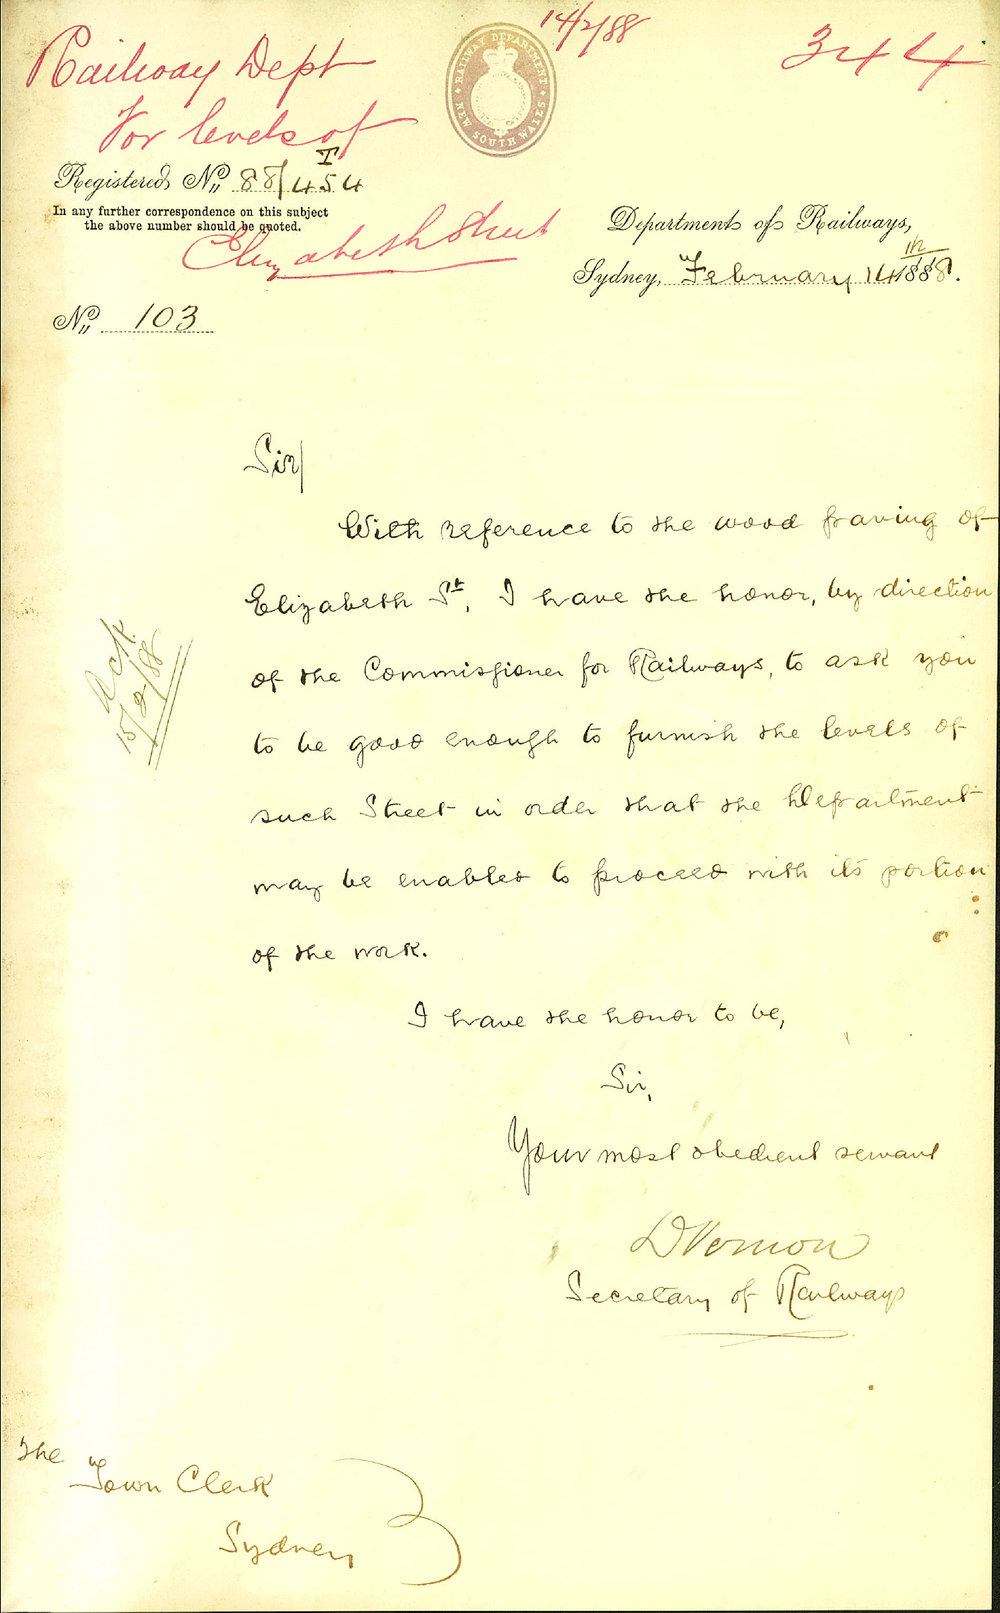 14/2/88
344
Railway Dept
For levels of
Elizabeth Street
RAILWAY DEPARTMENT
NEW SOUTH WALES
Registered No. 88/454
T
In any further correspondence on this subject
the above number should be quoted.
Department of Railways,
Sydney, February 14th 1888.
No. 103
Sir/
With reference to the wood paving of
Elizabeth St, I have the honor, by direction
of the Commissioner for Railways, to ask you
to be good enough to furnish the levels of
such Street in order that the Department
may be enabled to proceed with its portion
of the work.
Ack.
15/2/88
I have the honor to be,
Sir,
Your most obedient servant
D Vernon
Secretary of Railways
The
Town Clerk
Sydney